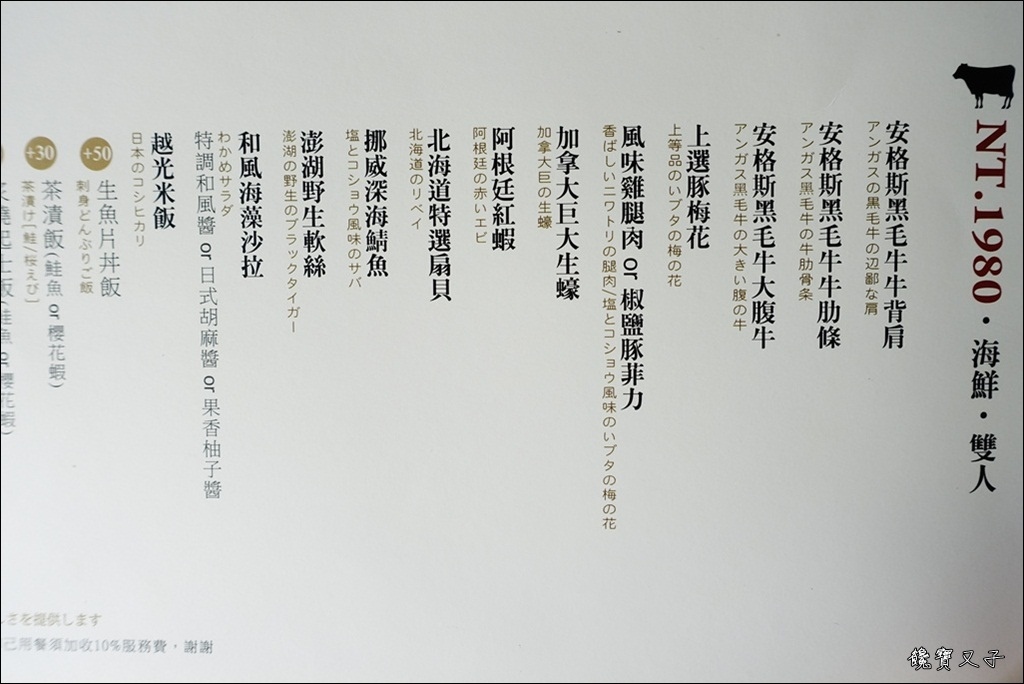 NT.1980・海鮮・雙人
安格斯黑毛牛牛背肩
アンガスの黒毛牛の辺鄙な肩
安格斯黑毛牛牛肋條
アンガス黒毛牛の牛肋骨条
安格斯黑毛牛大腹牛
アンガス黒毛牛の大きい腹の牛
上選豚梅花
上等品のいブタの梅の花
風味雞腿肉 or 椒鹽豚菲力
香ばしいニワトリの腿肉/塩とコショウ風味のいブタの梅の花
加拿大巨大生蠔
加拿大巨の生蠔
阿根廷紅蝦
阿根廷の赤いエビ
北海道特選扇貝
北海道のリベイ
挪威深海鯖魚
塩とコショウ風味のサバ
澎湖野生軟絲
澎湖の野生のブラックタイガー
和風海藻沙拉
わかめサラダ
特調和風醬 or 日式胡麻醬 or 果香柚子醬
越光米飯
日本のコシヒカリ
+50 生魚片丼飯
刺身どんぶりご飯
+30 茶漬飯(鮭魚 or 櫻花蝦)
茶漬け[鮭/桜えび]
さを提供します
己用餐須加收10%服務費，謝謝
饞寶又子